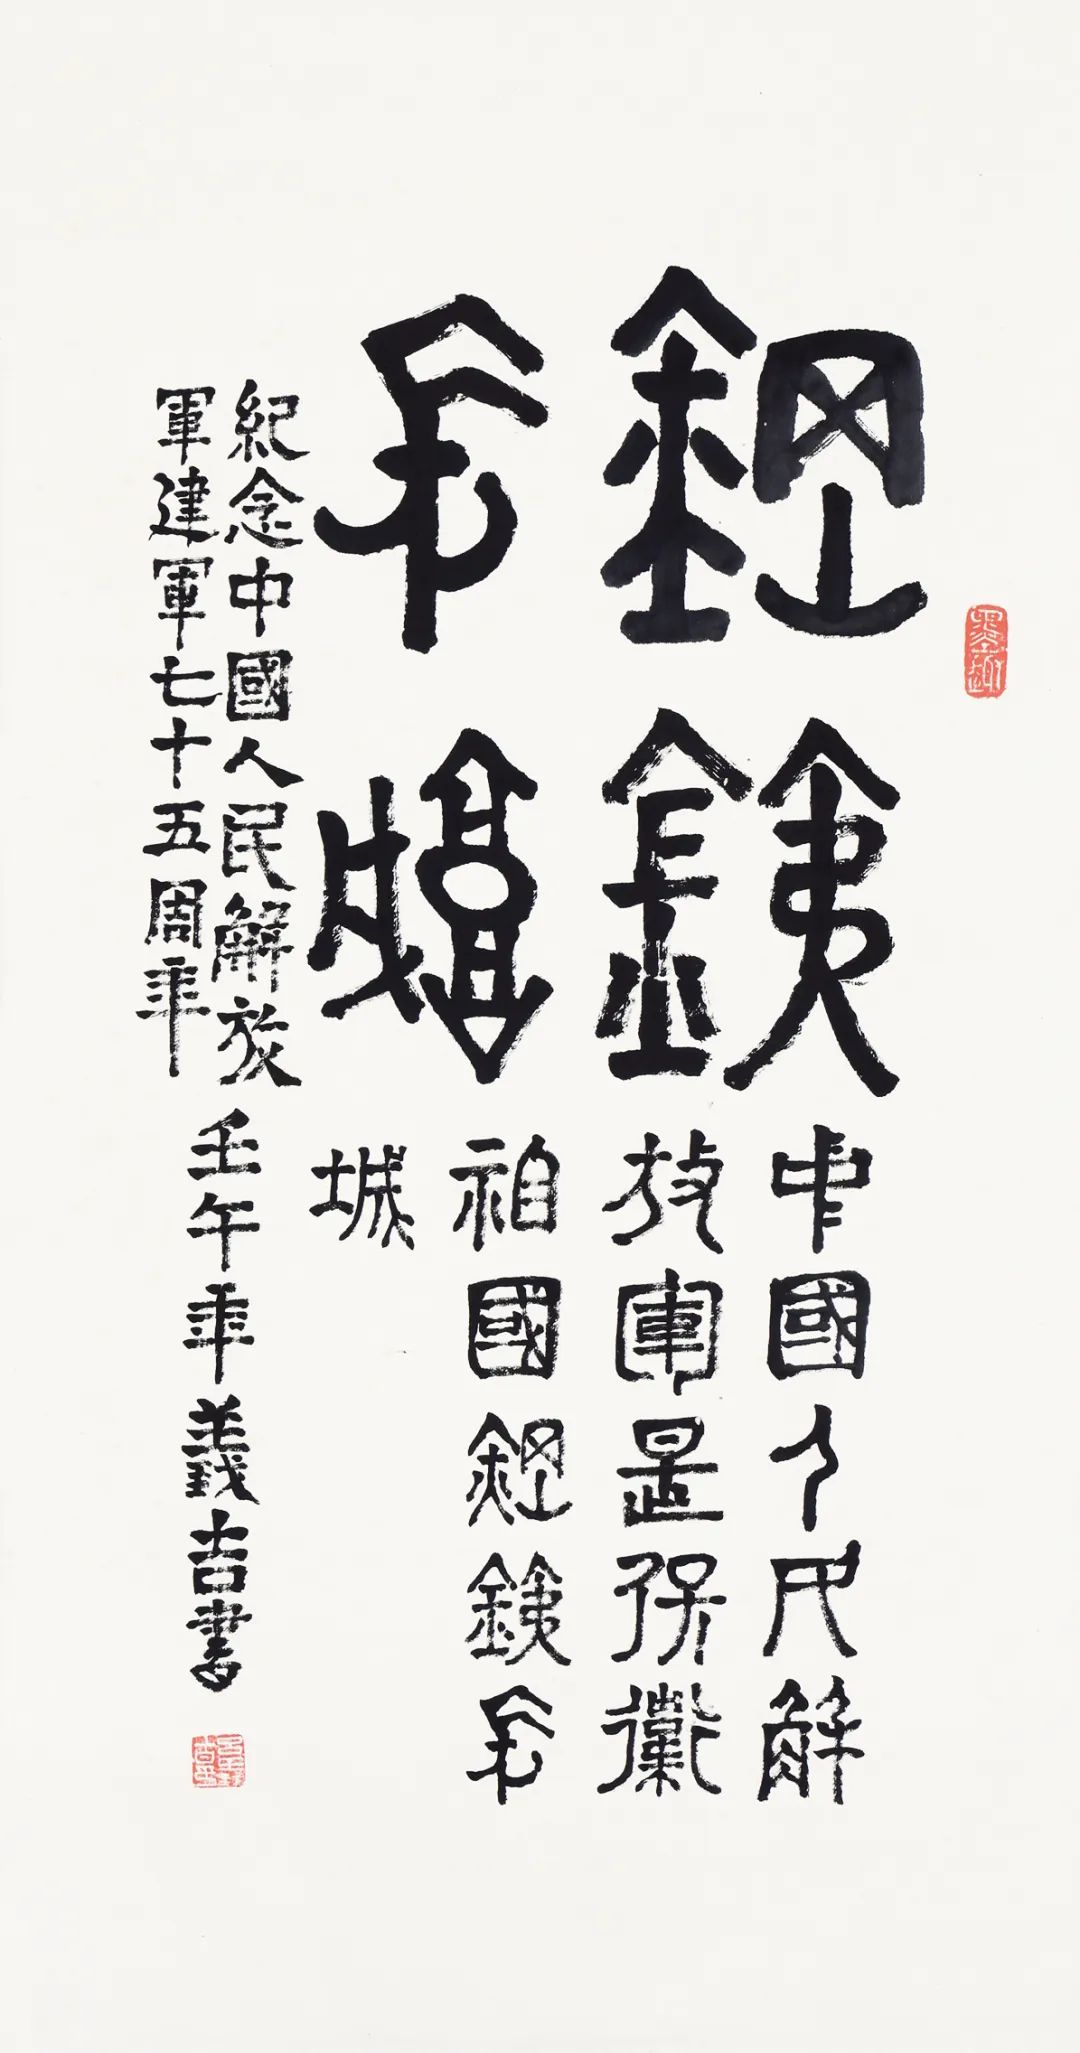 鋼銕
長城
中國人民解
放軍是保衛
祖國鋼銕長
城
紀念中國人民解放
軍建軍七十五周年
壬午年義吉書
墨趣